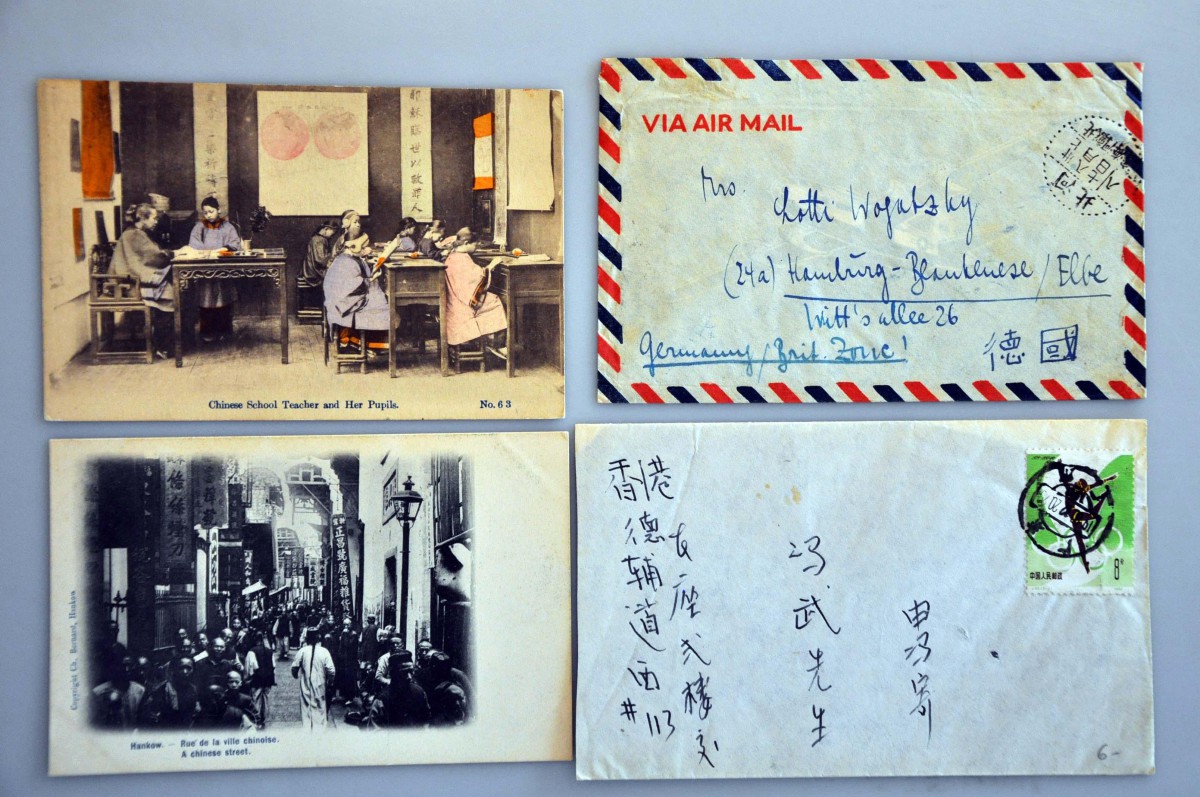 耶穌臨世以救罪人
Chinese School Teacher and Her Pupils.
No. 63
VIA AIR MAIL
Mrs.
Lotti Wogatzky
(24a) Hamburg-Blankenese/Elbe
Witt's allee 26
Germany/Brit. Zone!
德國
正昌號廣福雜貨
Copyright Ch. Bernard, Hankow
Hankow. — Rue de la ville chinoise.
A chinese street.
香港
德辅道西#113
座弍楼交
冯武先生
申冯寄
中国人民邮政
8分
6-